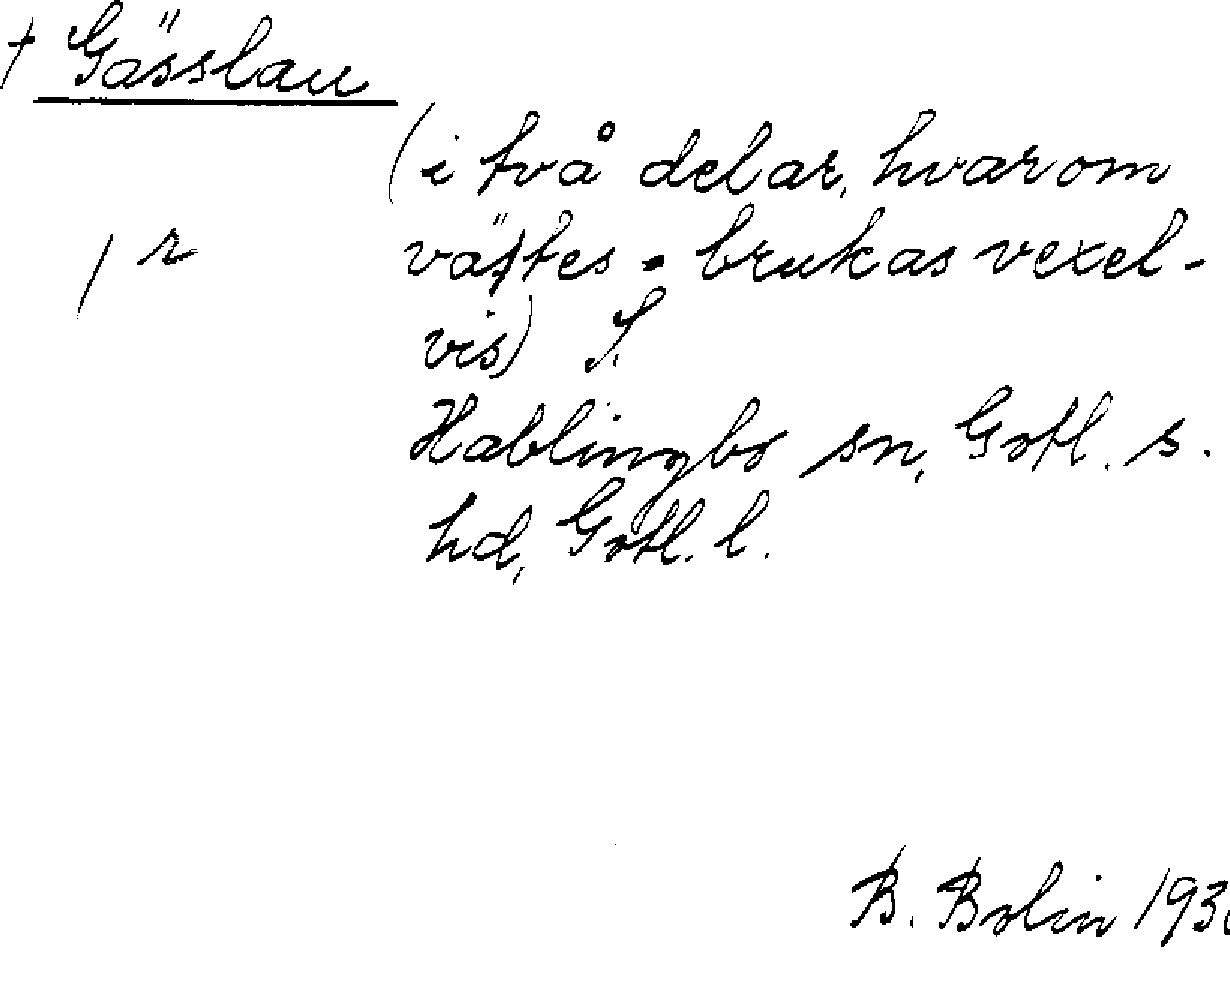 † Gässlau
(i två delar, hvarom
/ r
växtes - brukas vexel-
vis) S.
Hablingbo sn, Gotl. s.
hd, Gotl. l.
B. Bolin 193